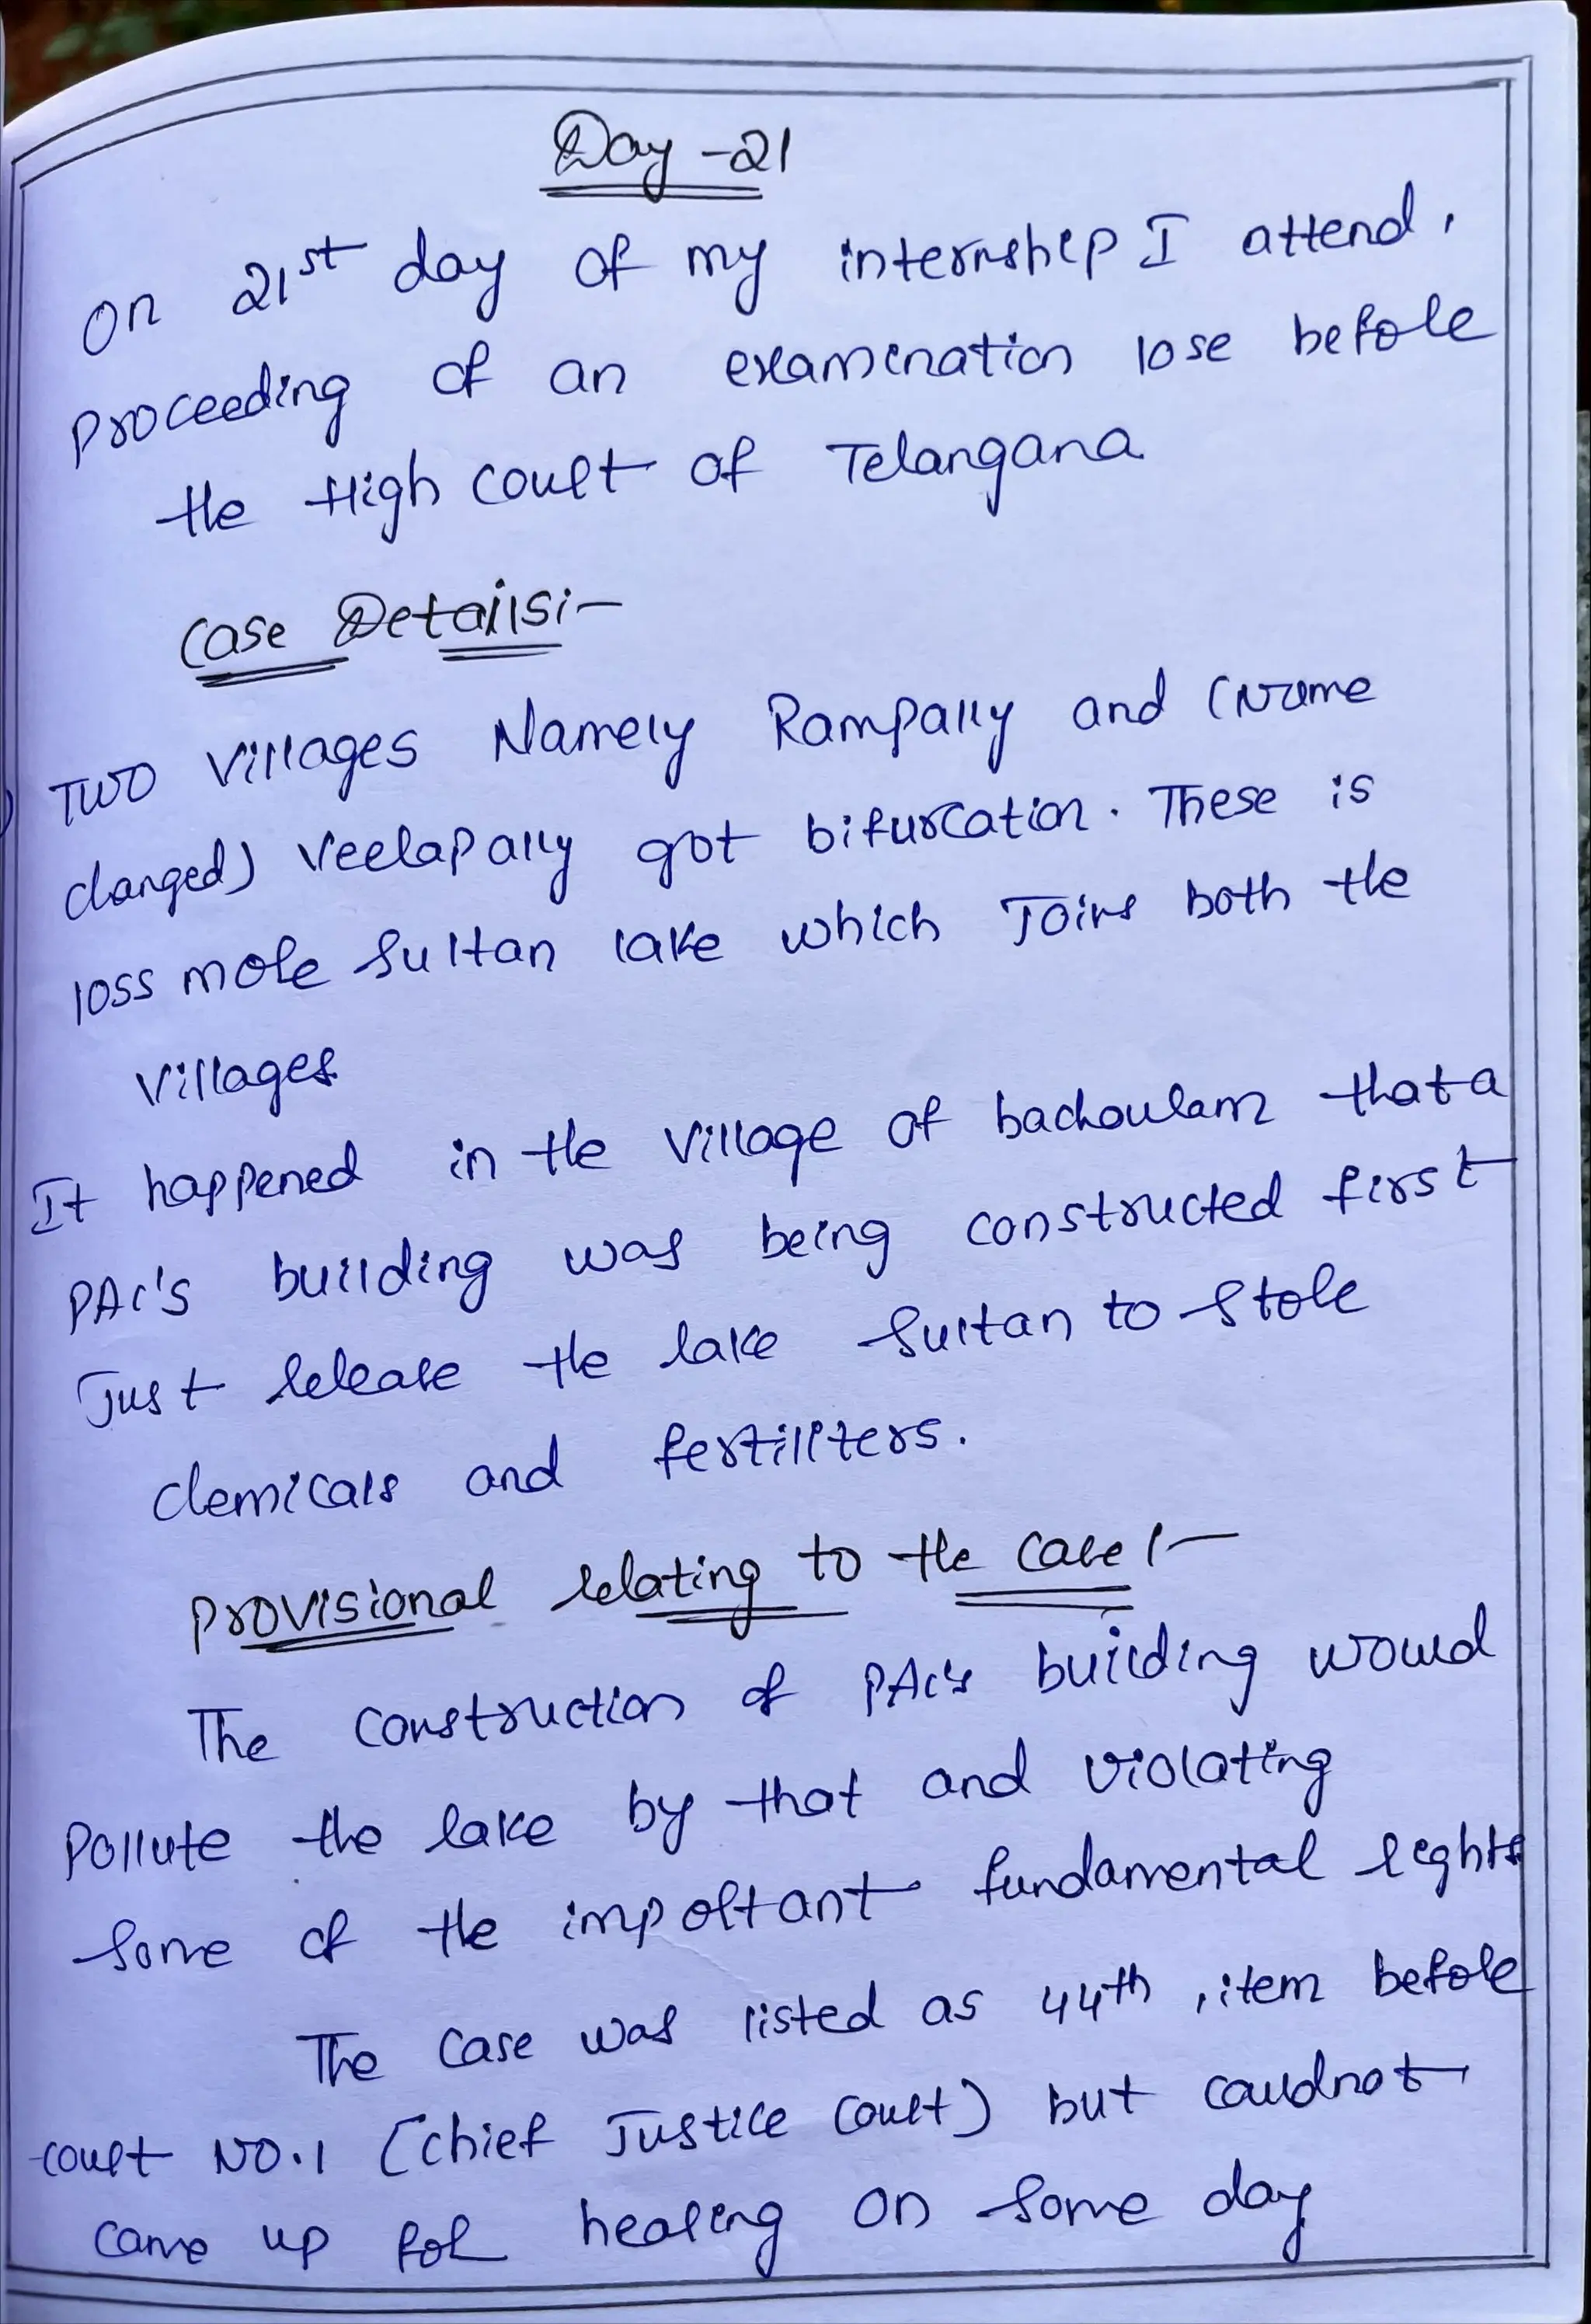 Day -21
On 21st day of my internship I attend,
proceeding of an examination lose before
the High Court of Telangana
Case Details:-
Two Villages Namely Rampally and (Name
changed) Veelapally got bifurcation. These is
loss more Sultan lake which Joins both the
Villages
It happened in the Village of bachoulam that a
PAC's building was being constructed first
Just release the lake Sultan to store
chemicals and fertilizers.
Provisional relating to the case :-
The construction of PAC's building would
Pollute the lake by that and violating
some of the important fundamental rights
The case was listed as 44th, item before
court NO.1 (chief Justice court) but couldnot
came up for hearing on some day